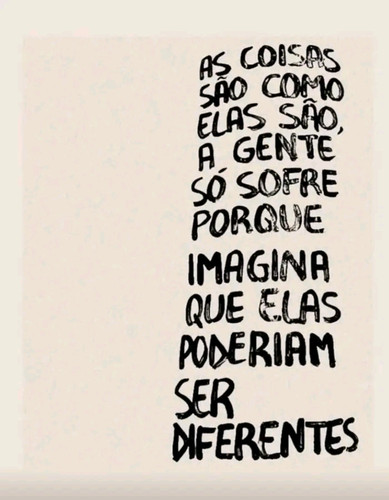 AS COISAS
SÃO COMO
ELAS SÃO,
A GENTE
SÓ SOFRE
PORQUE
IMAGINA
QUE ELAS
PODERIAM
SER
DIFERENTES